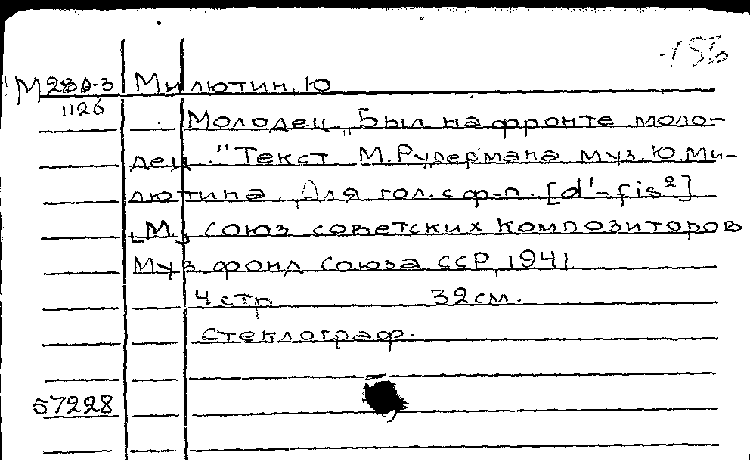 -156
М 280-3 Милютин, Ю
1126
Молодец „Был на фронте моло-
дец." Текст М. Рудермана муз. Ю. Ми-
лютина Для гол. с ф-п. [d'-fis²]
[М.], Союз советских композиторов
Муз фонд Союза ССР, 1941
4 стр 32 см.
стеклограф.
57228